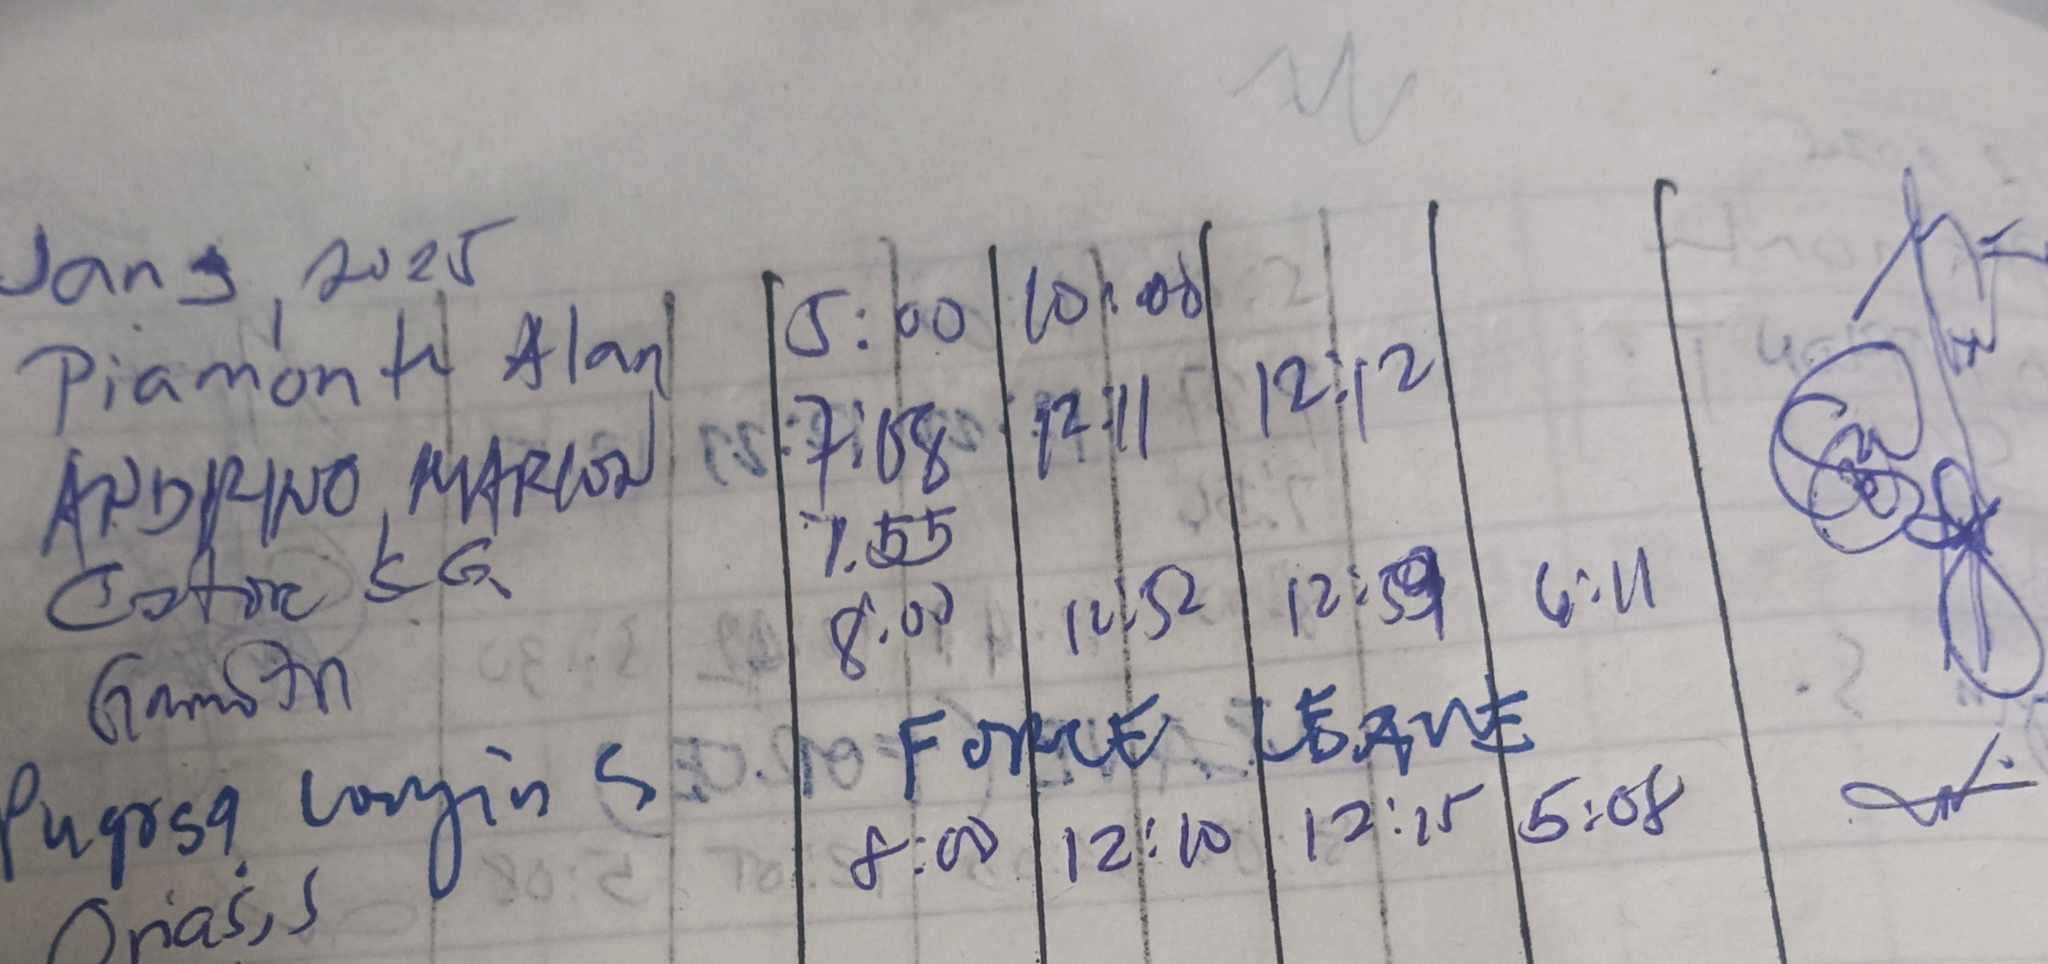 Jan 3, 2025
Piamonte Alan 5:00 10:00
ANDRINO, MARLON 7:58 12:11 12:12
Castor SG 7:55
8:00 12:52 12:59 6:11
Pugosa, Longin S FORCE LEAVE
Orias, S 8:00 12:10 12:15 5:08